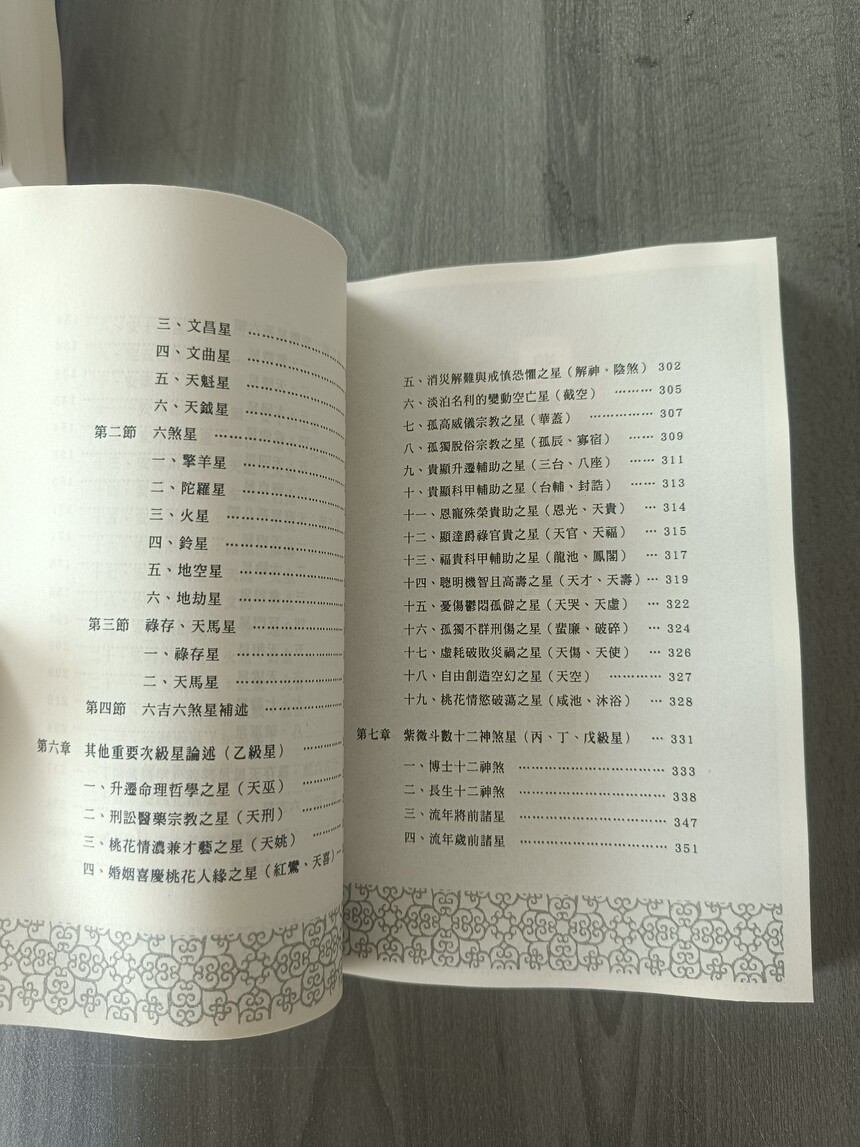 三、文昌星 ……………
四、文曲星 ……………
五、天魁星 ……………
六、天鉞星 ……………
第二節 六煞星 ………………
一、擎羊星 ……………
二、陀羅星 ……………
三、火星 ………………
四、鈴星 ………………
五、地空星 ……………
六、地劫星 ……………
第三節 祿存、天馬星 ……………
一、祿存星 ……………
二、天馬星 ……………
第四節 六吉六煞星補述 …………
第六章 其他重要次級星論述（乙級星） ……
一、升遷命理哲學之星（天巫） ………
二、刑訟醫藥宗教之星（天刑） ………
三、桃花情濃兼才藝之星（天姚） ……
四、婚姻喜慶桃花人緣之星（紅鸞、天喜）…
五、消災解難與戒慎恐懼之星（解神、陰煞） 302
六、淡泊名利的變動空亡星（截空） ……… 305
七、孤高威儀宗教之星（華蓋） …………… 307
八、孤獨脫俗宗教之星（孤辰、寡宿） …… 309
九、貴顯升遷輔助之星（三台、八座） …… 311
十、貴顯科甲輔助之星（台輔、封誥） …… 313
十一、恩寵殊榮貴助之星（恩光、天貴） … 314
十二、顯達爵祿官貴之星（天官、天福） … 315
十三、福貴科甲輔助之星（龍池、鳳閣） … 317
十四、聰明機智且高壽之星（天才、天壽）… 319
十五、憂傷鬱悶孤僻之星（天哭、天虛） … 322
十六、孤獨不群刑傷之星（蜚廉、破碎） … 324
十七、虛耗破敗災禍之星（天傷、天使） … 326
十八、自由創造空幻之星（天空） ………… 327
十九、桃花情慾破蕩之星（咸池、沐浴） … 328
第七章 紫微斗數十二神煞星（丙、丁、戊級星） … 331
一、博士十二神煞 …………………………… 333
二、長生十二神煞 …………………………… 338
三、流年將前諸星 …………………………… 347
四、流年歲前諸星 …………………………… 351